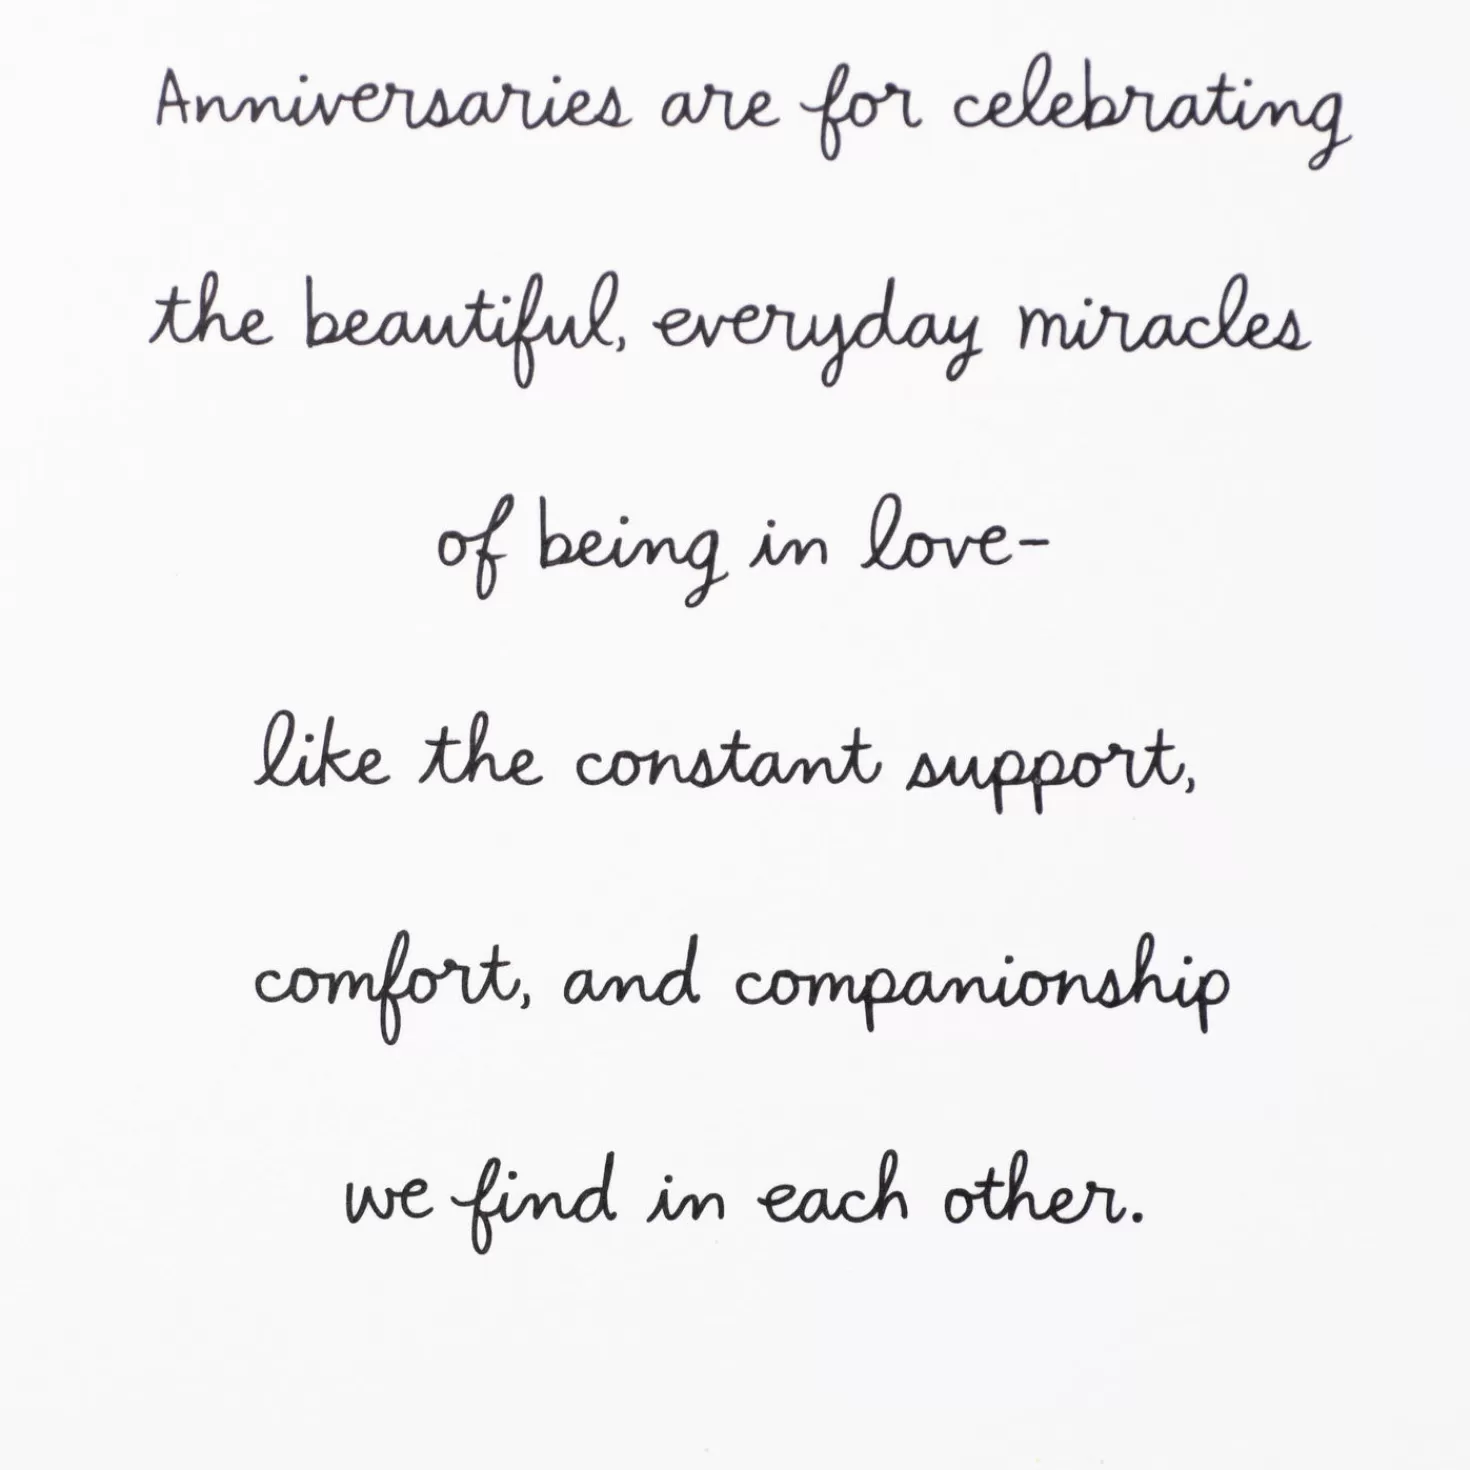 Anniversaries are for celebrating
the beautiful, everyday miracles
of being in love-
like the constant support,
comfort, and companionship
we find in each other.